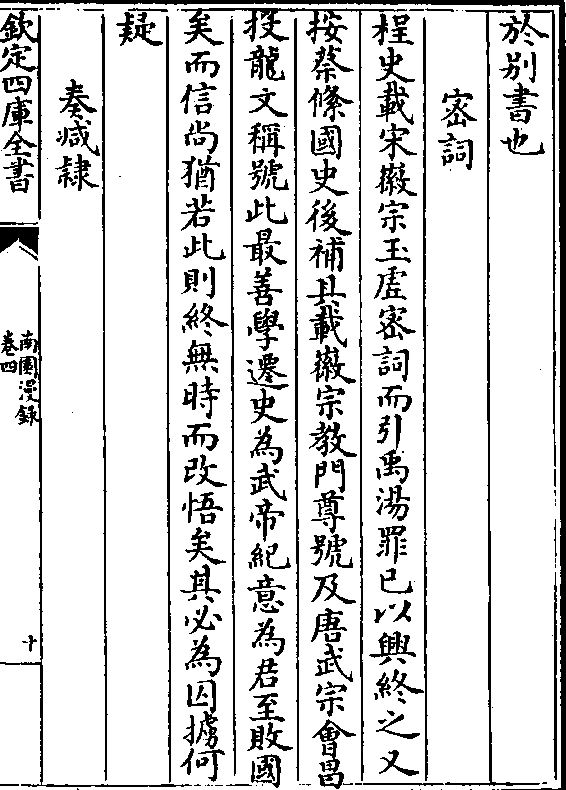 於别書也
密詞
桯史載宋徽宗玉虚密詞而引禹湯罪己以興終之又
按蔡絛國史後補具載徽宗教門尊號及唐武宗會昌
投龍文稱號此最善學遷史為武帝紀意為君至敗國
矣而信尚猶若此則終無時而改悟矣其必為囚擄何
疑
奏减隷
欽定四庫全書
南園漫録
卷四
十